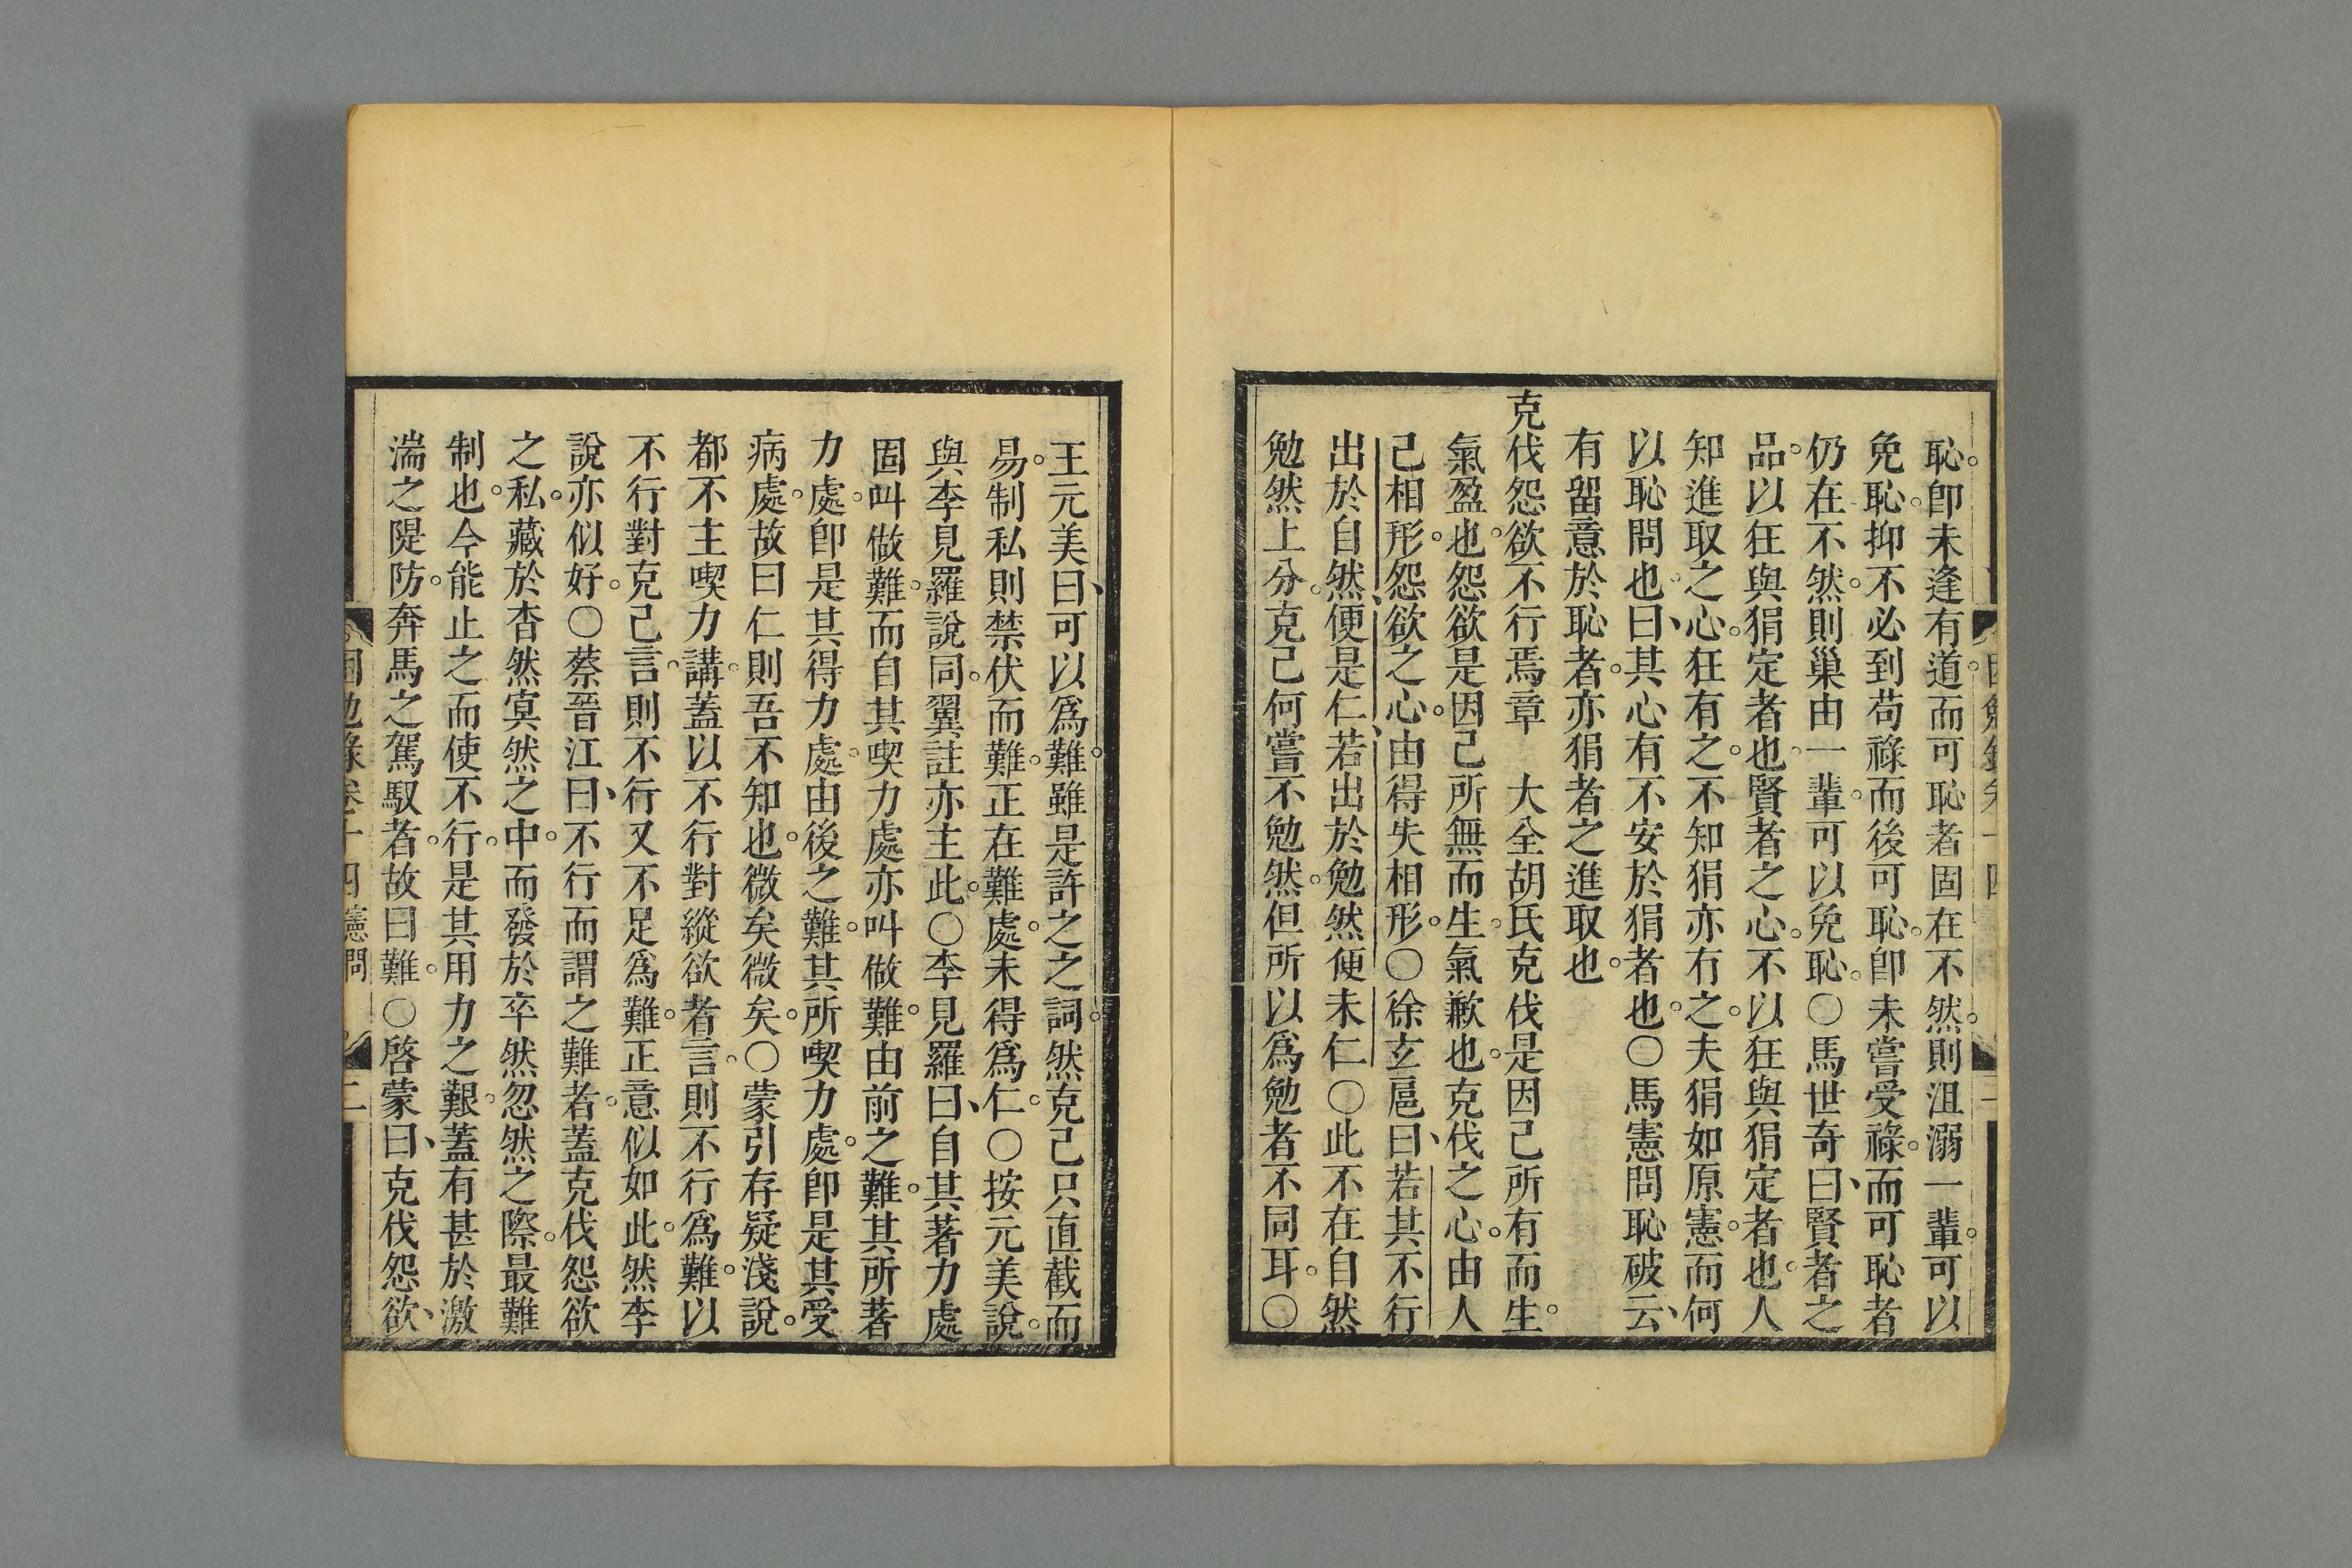 恥。卽未逢有道。而可恥者固在不然。則沮溺一輩。可以
免恥。抑不必到苟祿而後可恥。卽未嘗受祿。而可恥者
仍在不然。則巢由一輩。可以免恥。〇馬世奇曰、賢者之
品。以狂與狷定者也。賢者之心。不以狂與狷定者也。人
知進取之心。狂有之。不知狷亦有之。夫狷如原憲。而何
以恥問也。曰、其心有不安於狷者也。〇馬憲問恥破云、
有留意於恥者。亦狷者之進取也。
克伐怨欲不行焉章　大全胡氏克伐是因己所有而生。
氣盈也。怨欲是因己所無而生。氣歉也。克伐之心。由人
己相形。怨欲之心。由得失相形。〇徐玄扈曰、若其不行
出於自然、便是仁、若出於勉然便未仁〇此不在自然
勉然上分。克己何嘗不勉然。但所以爲勉者不同耳。〇
王元美曰、可以爲難。難雖是許之之詞。然克己只直截而
易。制私則禁伏而難。正在難處。未得爲仁。〇按元美說。
與李見羅說同。翼註亦主此。〇李見羅曰、自其著力處
固叫做難。而自其喫力處亦叫做難。由前之難。其所著
力處。卽是其得力處。由後之難。其所喫力處。卽是其受
病處。故曰仁則吾不知也。微矣微矣。〇蒙引存疑淺說。
都不主喫力講。蓋以不行對縱欲者言。則不行爲難。以
不行對克己言。則不行又不足爲難。正意似如此。然李
說亦似好。〇蔡晉江曰、不行而謂之難者。蓋克伐怨欲
之私。藏於杳然冥然之中。而發於卒然忽然之際。最難
制也。今能止之而使不行。是其用力之艱。蓋有甚於激
湍之隄防。奔馬之駕馭者。故曰難。〇啓蒙曰、克伐怨欲、
困勉錄卷十四 憲問 二